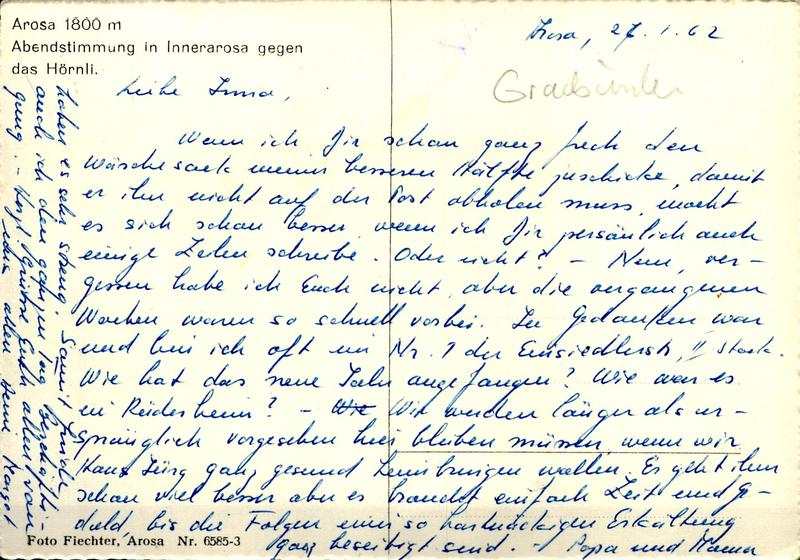 Arosa 1800 m
Abendstimmung in Innerarosa gegen
das Hörnli.
Arosa, 27. 1. 62
Graubünden
Liebe Irma,
Wenn ich Dir schon ganz frech den
Wäschesack meiner besseren Hälfte zuschicke, damit
er ihn nicht auf der Post abholen muss, macht
es sich schon besser, wenn ich Dir persönlich auch
einige Zeilen schreibe. Oder nicht? – Nein, ver-
gessen habe ich Euch nicht, aber die vergangenen
Wochen waren so schnell vorbei. In Gedanken war
und bin ich oft in Nr. 7 der Einsiedlerstr, II. Stock.
Wie hat das neue Jahr angefangen? Wie war es
in Reidesheim? – Wir werden länger als ur-
sprünglich vorgesehen hier bleiben müssen, wenn wir
Hans Jürg ganz gesund heimbringen wollen. Es geht ihm
schon viel besser aber es braucht einfach Zeit und Ge-
duld, bis die Folgen einer so hartnäckigen Erkältung
ganz beseitigt sind. – Papa und Mama
haben es sehr streng. Somit finde
auch ich den ganzen Tag Beschäfti-
gung. – Herzl. grüsst Euch allen von
allen Deine Margot
Foto Fiechter, Arosa Nr. 6585-3